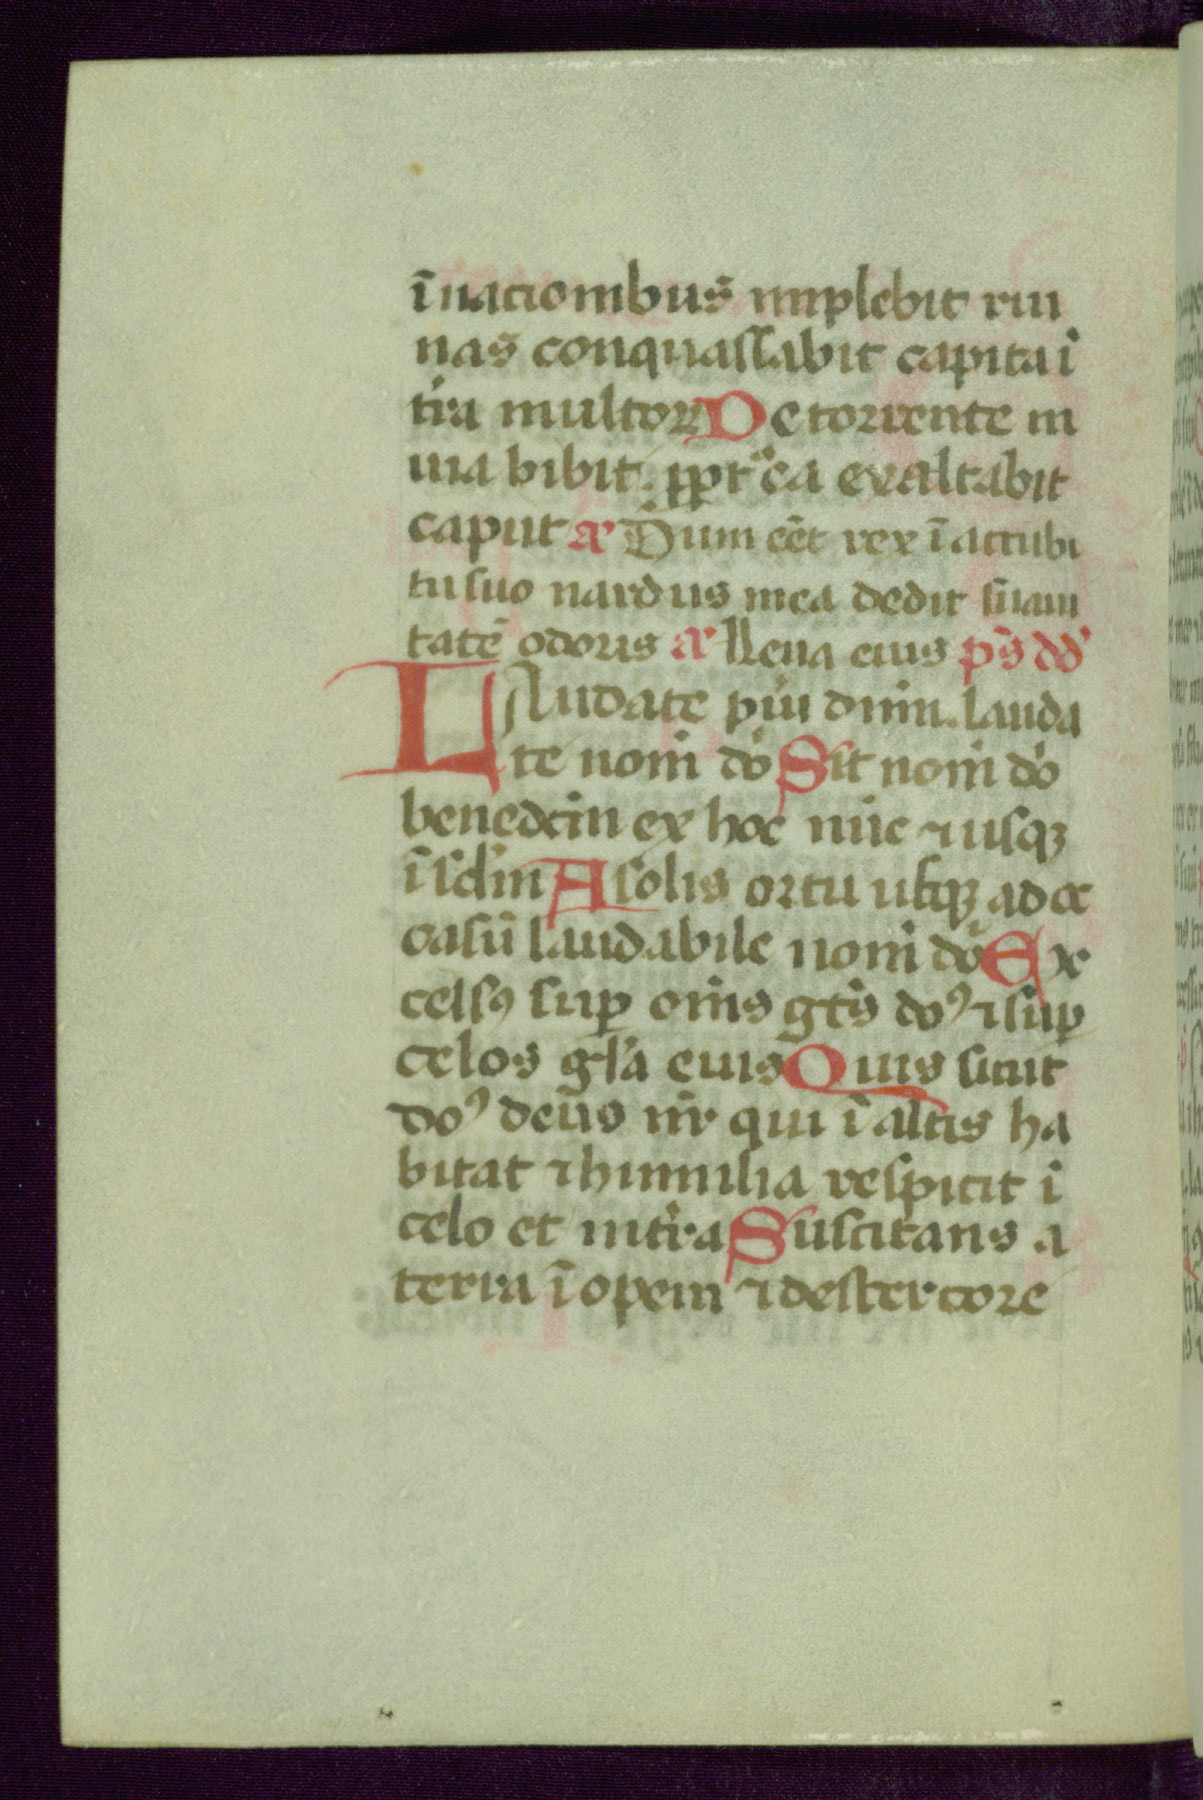 ī nationibus implebit rui
nas conquassabit capita ī
tīra multoꝝ De torrente in
uia bibit. ꝓpt̄ ea exaltabit
caput aͬ Dum eēt rex ī accubi
tu suo nardus mea dedit suaui
tatē odoris aͬ lleua eius pˢ̄ dd̾
LAudate pūi dn̄m. lauda
te nom̄ do᷑ Sit nom̄ do᷑
benedctm̄ ex hoc nūc ⁊ usqꝫ
ī sc̄lm̄ A solis ortu usqꝫ ad oc
casū laudabile nom̄ do᷑ Ex
celsꝰ suꝑ om̄s gēts doꝰ ⁊ suꝑ
celos gl̄a eius Quis sicut
doꝰ deūs nr̄ qui ī altis ha
bitat ⁊ humilia respicit ī
celo et in tīra Suscitans a
terra ī opem ⁊ de stercore